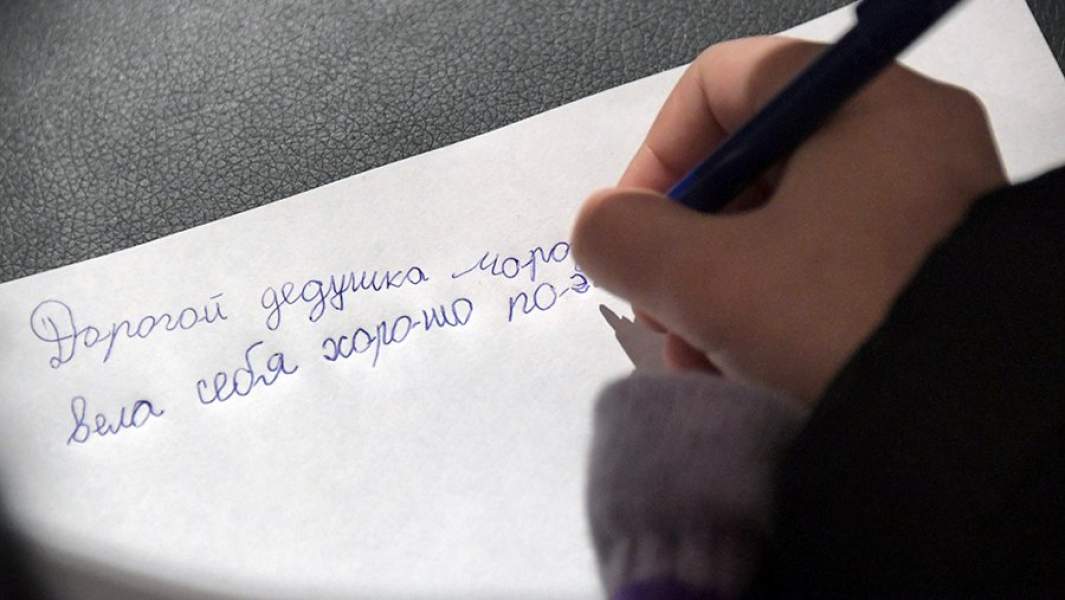 Дорогой дедушка моро
вела себя хорошо по-э